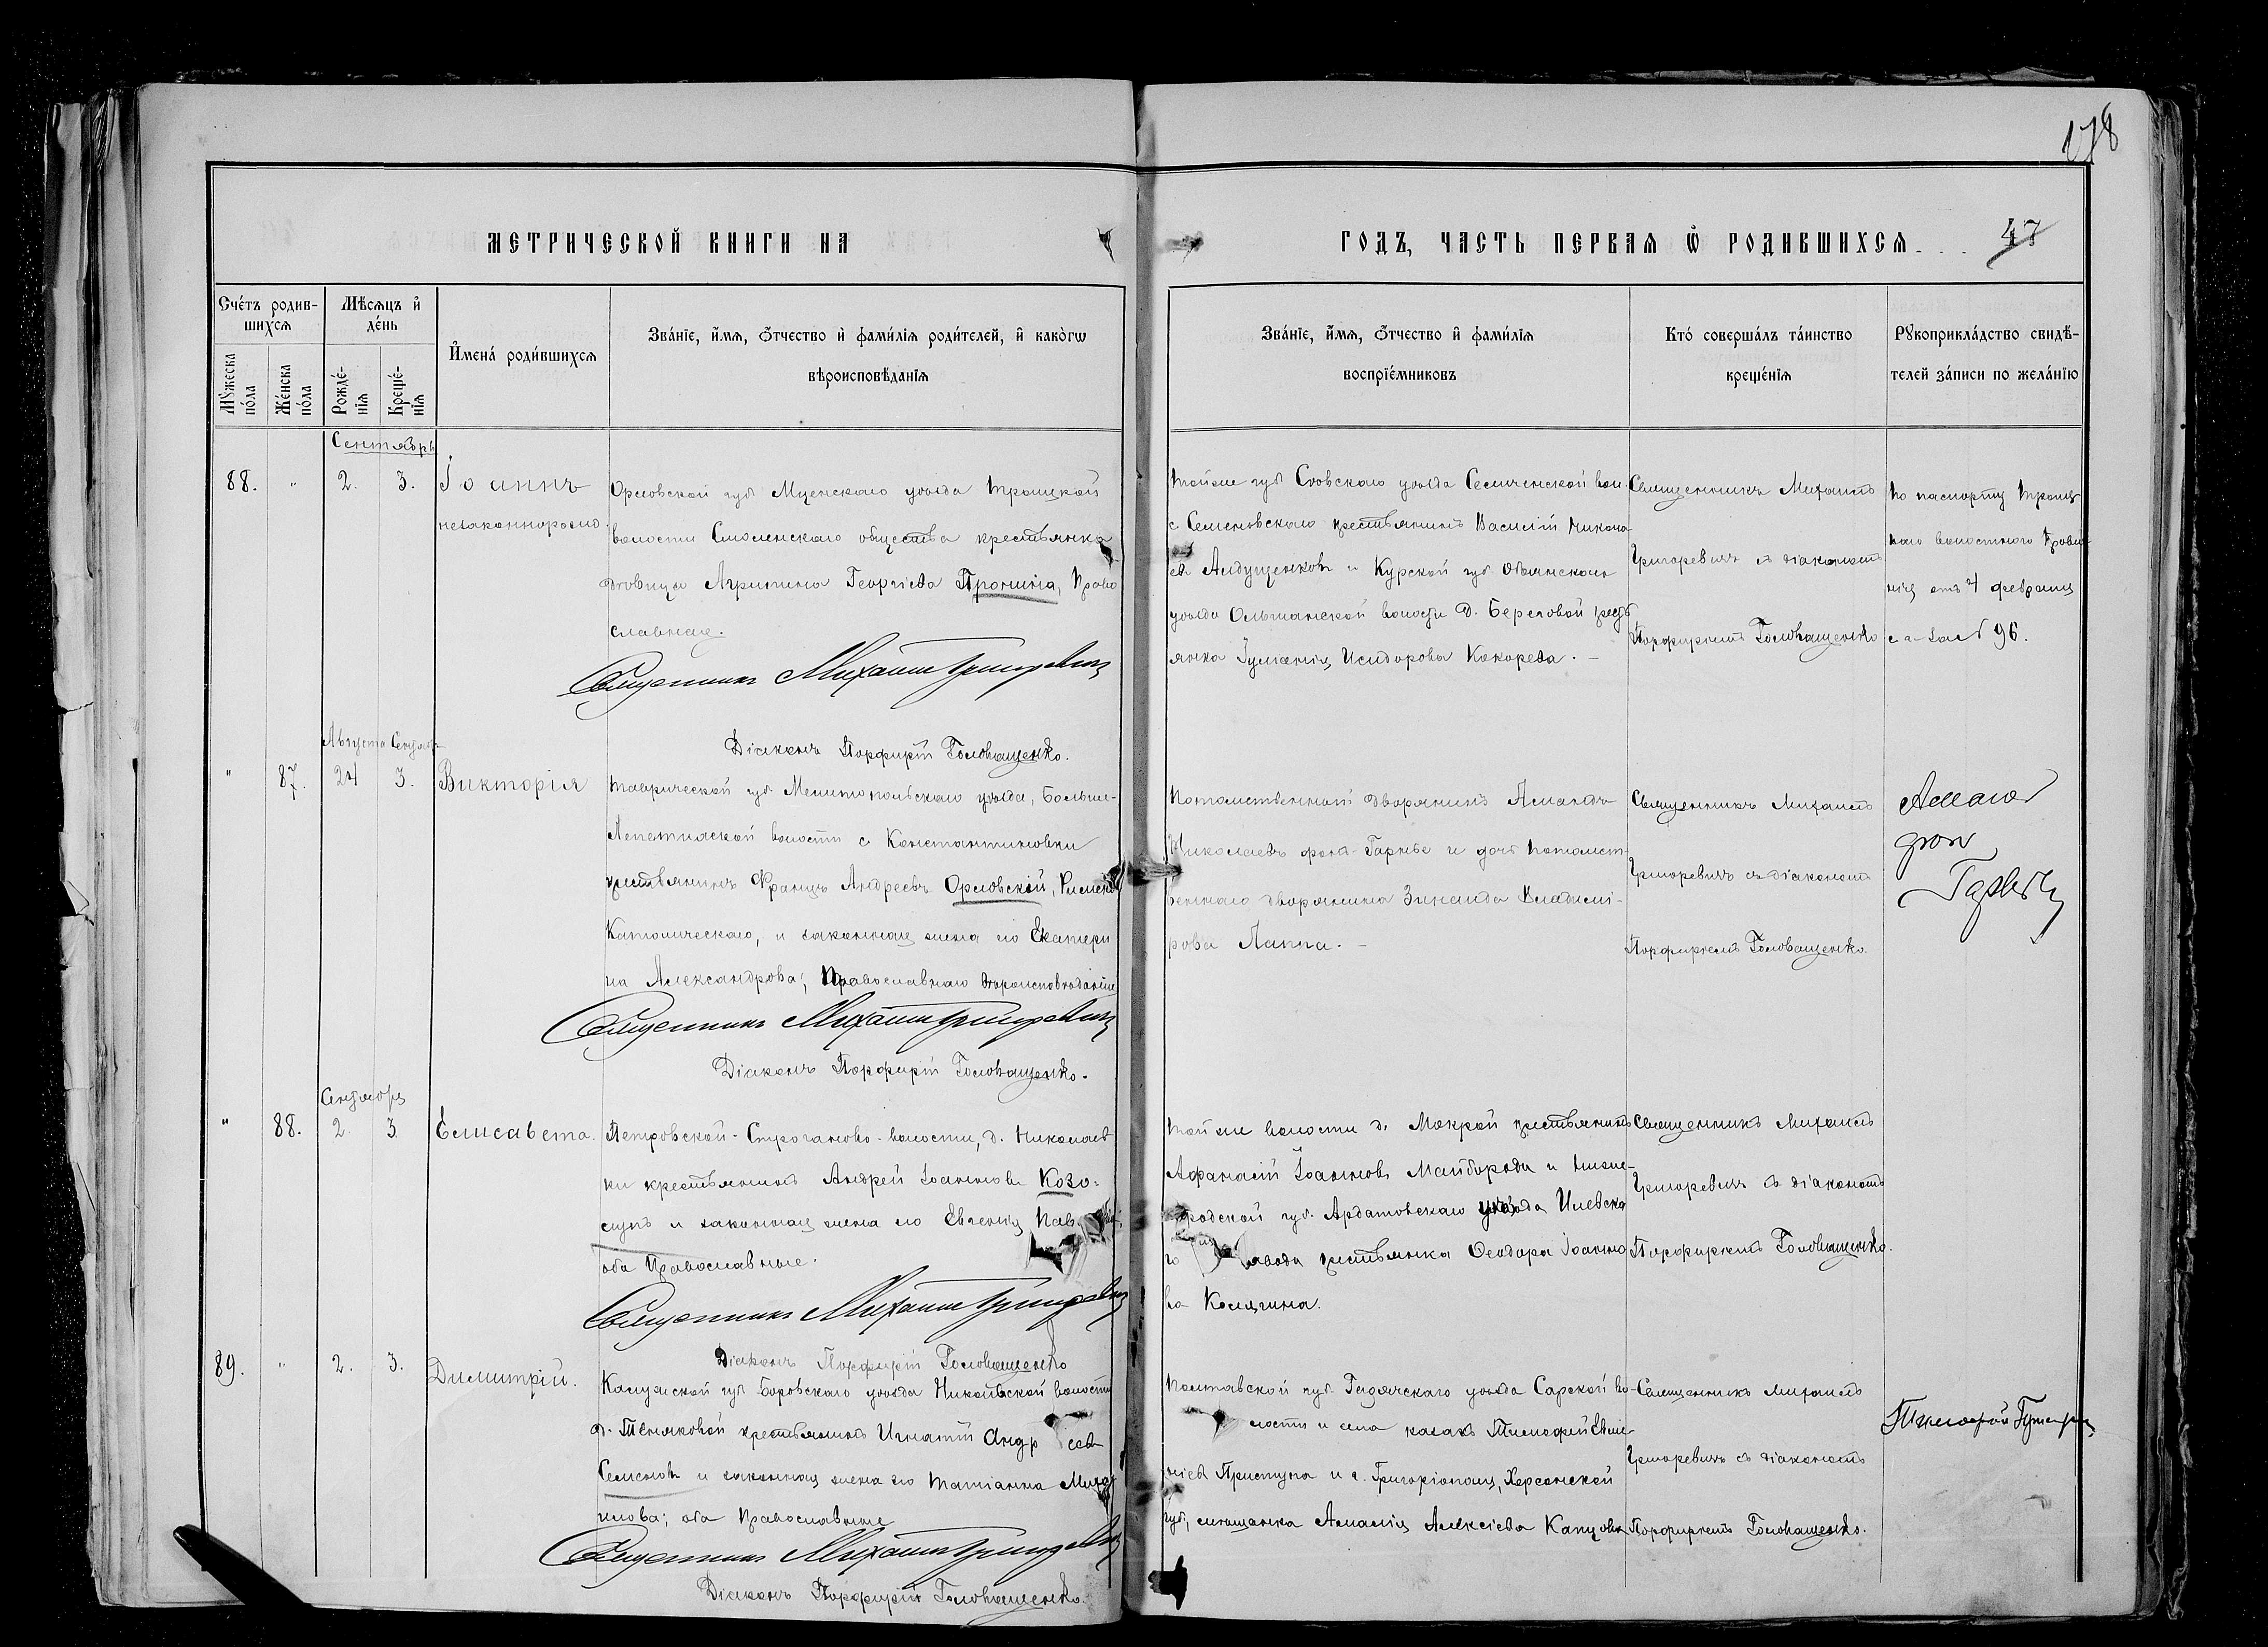 178
МЕТРИЧЕСКОЙ КНИГИ НА
ГОДЪ, ЧАСТЬ ПЕРВАЯ Ѡ РОДИВШИХСЯ. . . 47
Счéтъ родив-
шихся
Мѣсяцъ и҆
дéнь
Мꙋжеска
пóла
Жéнска
пóла
Рождé-
нїя
Крещé-
нїя
И҆менá роди́вшихся
Звáнїе, и҆́мя, ѻ҆́тчество и҆ фами́лїя роди́телей, и҆ какóгѡ
вѣроисповѣ́данїя
Звáнїе, и҆́мя, ѻ҆́тчество и҆ фами́лїя
воспрїéмниковъ
Ктó совершáлъ тáинство
крещéнїя
Рꙋкоприклáдство свидѣ́-
телей зáписи по желáнїю
Сентябрь
88.
"
2.
3.
Іоаннъ
незаконнорожд.
Орловской губ Мценскаго уѣзда Троицкой
волости Смоленскаго общества крестьянка
дѣвица Агрипина Георгіева Пронина, Право
славная.
Священникъ Михаилъ Григоревичъ
Діаконъ Порфирій Головащенко.
Тойже губ Сѣвскаго уѣзда Семиченской вол.
с Семеновскаго крестьянинъ Василій Никола-
евъ Алдущенковъ и Курской губ. Обоянскаго
уѣзда Ольшанской волости д. Береговой крест
янка Іуліанія Исидорова Кокорева. –
Священникъ Михаилъ
Григоревичъ съ діакономъ
Порфиріемъ Головащенко
По паспорту Троиц
каго волостного Правле
нія отъ 4 февраля
с г за № 96.
Августа Сентяб
"
87.
24
3.
Викторія
Таврической губ Мелитопольскаго уѣзда, Больше-
Лепетихской волости с Константиновки
крестьянинъ Францъ Андреевъ Орловскій, Римско
Католическаго, и законная жена его Екатери
на Александрова; Православнаго вѣроисповѣданія
Священникъ Михаилъ Григоревичъ
Діаконъ Порфирій Головащенко.
Потомственный дворянинъ Амандъ
Николаевъ фонъ-Гарнье и дочь потомст-
веннаго дворянина Зинаида Владимі-
рова Лаппа. –
Священникъ Михаилъ
Григоревичъ съ діакономъ
Порфиріемъ Головащенко.
фон
Сентября
"
88.
2.
3
Елисавета.
Петровской-Строганово-волости, д. Николаев
ки крестьянинъ Андрей Іоанновъ Козо-
лупъ и законная жена его Евгенія Пав
оба Православные.
Священникъ Михаилъ Григоревичъ
Діаконъ Порфирій Головащенко
Тойже волости д. Мокрой крестьянинъ
Афанасій Іоанновъ Майборода и Ниже-
городской губ. Ардатовскаго уѣзда Илевска
го завода крестьянка Ѳеодора Іоанно
ва Колягина.
Священникъ Михаилъ
Григоревичъ съ діакономъ
Порфиріемъ Головащенко.
89.
"
2.
3.
Димитрій.
Калужской губ Боровскаго уѣзда Никольской волости
д. крестьянинъ Игнатій Андр еевъ
Семеновъ и законная жена его Татіанна Миха
илова; оба Православные
Священникъ Михаилъ Григоревичъ
Діаконъ Порфирій Головащенко.
Полтавской губ. Гадячскаго уѣзда Сарской во-
лости и села казакъ Тимофей Евме-
ніевъ Приступа и г. Григоріополя, Херсонской
губ., мѣщанка Амалія Алексіева Капцова
Священникъ Михаилъ
Григоревичъ съ діакономъ
Порфиріемъ Головащенко.
Тимофей